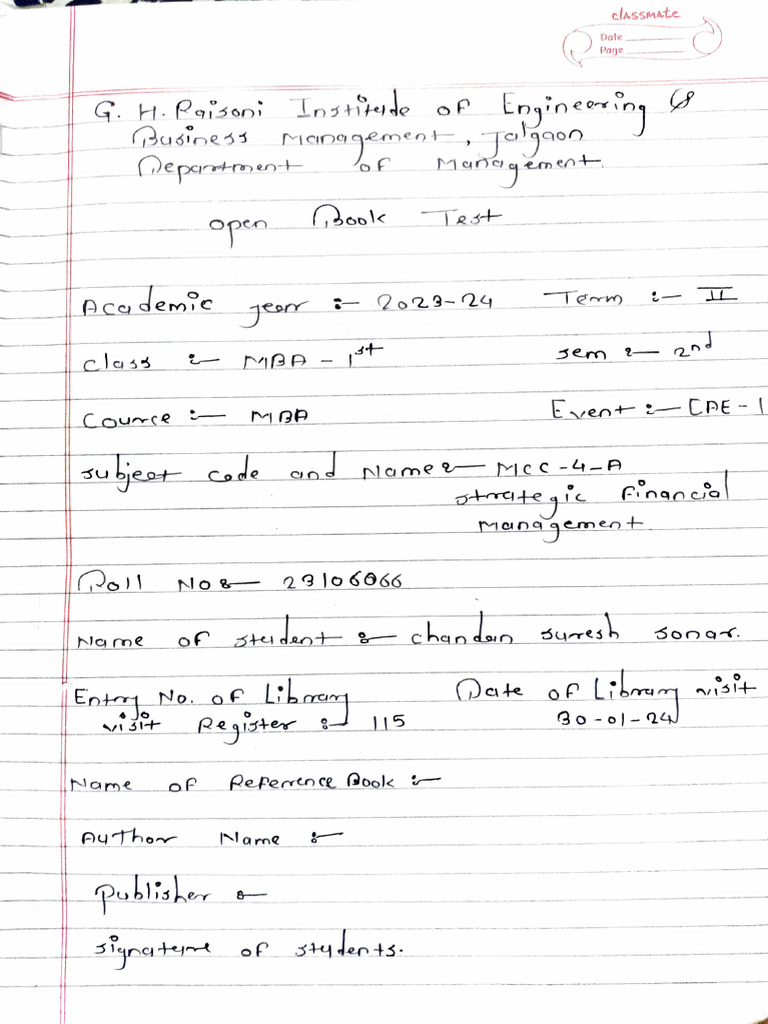 classmate
Date
Page
G. H. Raisoni Institude of Engineering &
Business Management, Jalgaon
Department of Management.
open Book Test
Academic year :- 2023-24 Term :- II
class :- MBA - 1st sem :- 2nd
Cource :- MBA Event :- CAE - 1
subject code and Name :- MCC-4-A
strategic Financial
Management
Roll No :- 23106066
Name of student :- chandan suresh sonar.
Entry No. of Library Date of Library visit
visit Register :- 115 30-01-24
Name of Referrence Book :-
Author Name :-
publisher :-
signature of students.